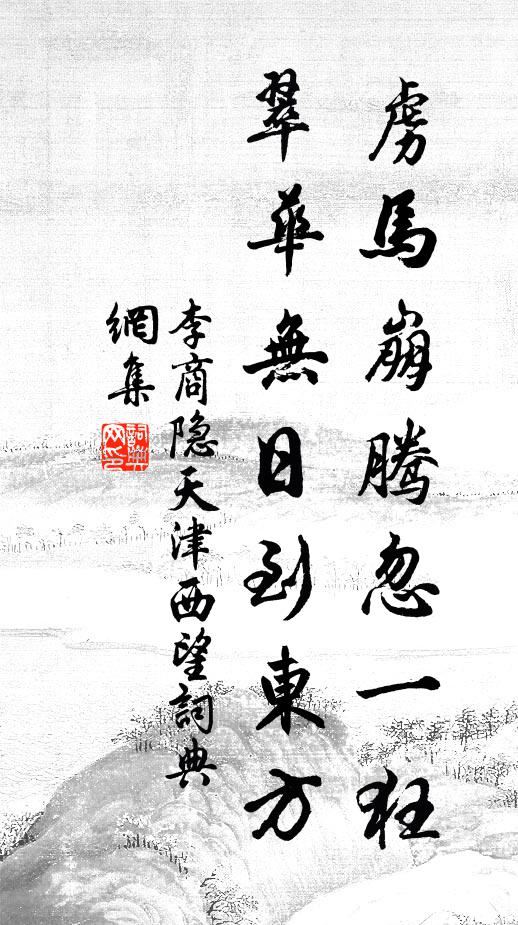 虜馬崩騰忽一狂
翠華無日到東方
李商隐天津西望詞典
網集